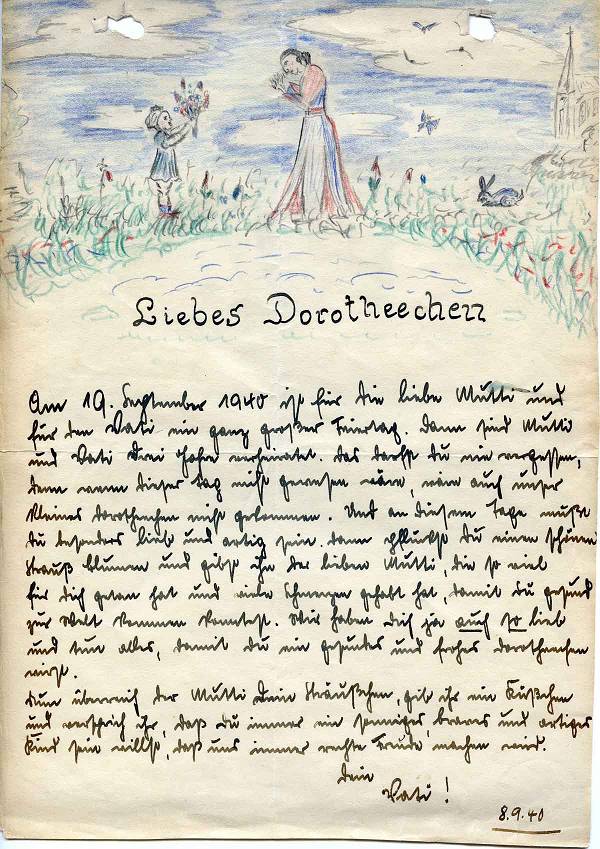 Liebes Dorotheechen
Am 19. September 1940 ist für die liebe Mutti und
für den Vati ein ganz großer Feiertag. Dann sind Mutti
und Vati drei Jahre verheiratet. Das darfst du nie vergessen,
denn wenn dieser Tag nicht gewesen wäre, wäre auch unser
kleines Dorotheechen nicht gekommen. Und an diesem Tage mußt
du besonders lieb und artig sein. Dann pflückst du einen schönen
Strauß Blumen und gibst ihn der lieben Mutti, die so viel
für dich getan hat und viele Schmerzen gehabt hat, damit du gesund
zur Welt kommen konntest. Wir haben dich ja auch so lieb
und tun alles, damit du ein gesundes und frohes Dorotheechen
wirst.
Nun überreich der Mutti dein Sträußchen, gib ihr ein Küßchen
und versprich ihr, daß du immer ein sonniges, braves und artiges
Kind sein willst, das uns immer rechte Freude machen wird.
Dein
Vati!
8.9.40